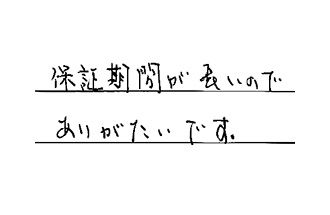 保証期間が長いので
ありがたいです。